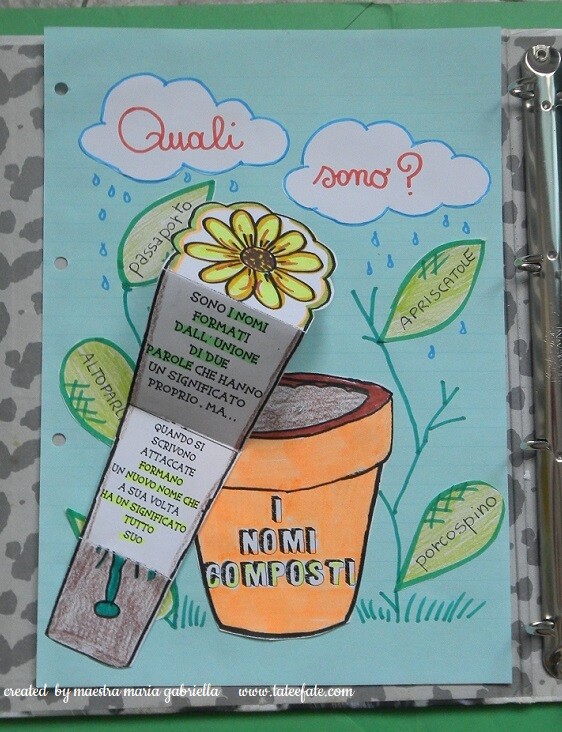 Quali
sono?
passaporto
APRISCATOLE
SONO I NOMI
FORMATI
DALL' UNIONE
DI DUE
PAROLE CHE HANNO
UN SIGNIFICATO
PROPRIO . MA...
QUANDO SI
SCRIVONO
ATTACCATE
FORMANO
UN NUOVO NOME CHE
A SUA VOLTA
HA UN SIGNIFICATO
TUTTO
SUO
I
NOMI
COMPOSTI
porcospino
created by maestra maria gabriella www.tateefate.com